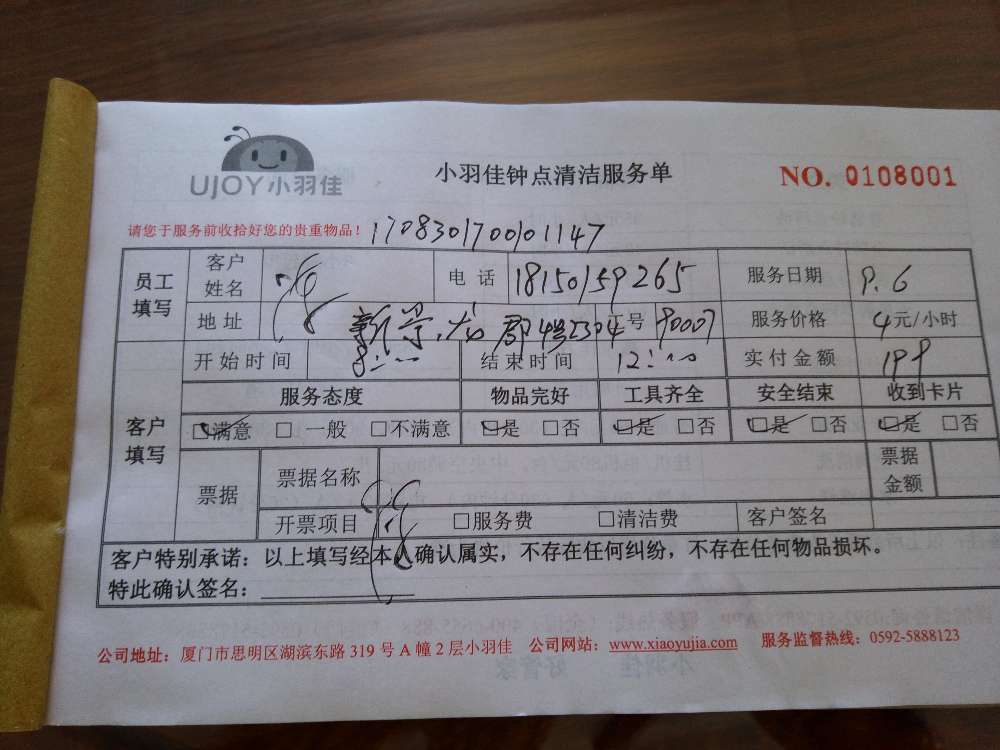 UJOY小羽佳
小羽佳钟点清洁服务单
NO. 0108001
请您于服务前收拾好您的贵重物品！ 170830170001147
员工填写 客户姓名 电话 18150159265 服务日期 9.6
地址 4号2304 工号 90007 服务价格 4元/小时
开始时间 8:00 结束时间 12:00 实付金额 199
客户填写 服务态度 物品完好 工具齐全 安全结束 收到卡片
☑满意 □一般 □不满意 ☑是 □否 ☑是 □否 ☑是 □否 ☑是 □否
票据 票据名称 票据金额
开票项目 □服务费 □清洁费 客户签名
客户特别承诺：以上填写经本人确认属实，不存在任何纠纷，不存在任何物品损坏。
特此确认签名：
公司地址：厦门市思明区湖滨东路 319 号 A 幢 2 层小羽佳 公司网站：www.xiaoyujia.com 服务监督热线：0592-5888123